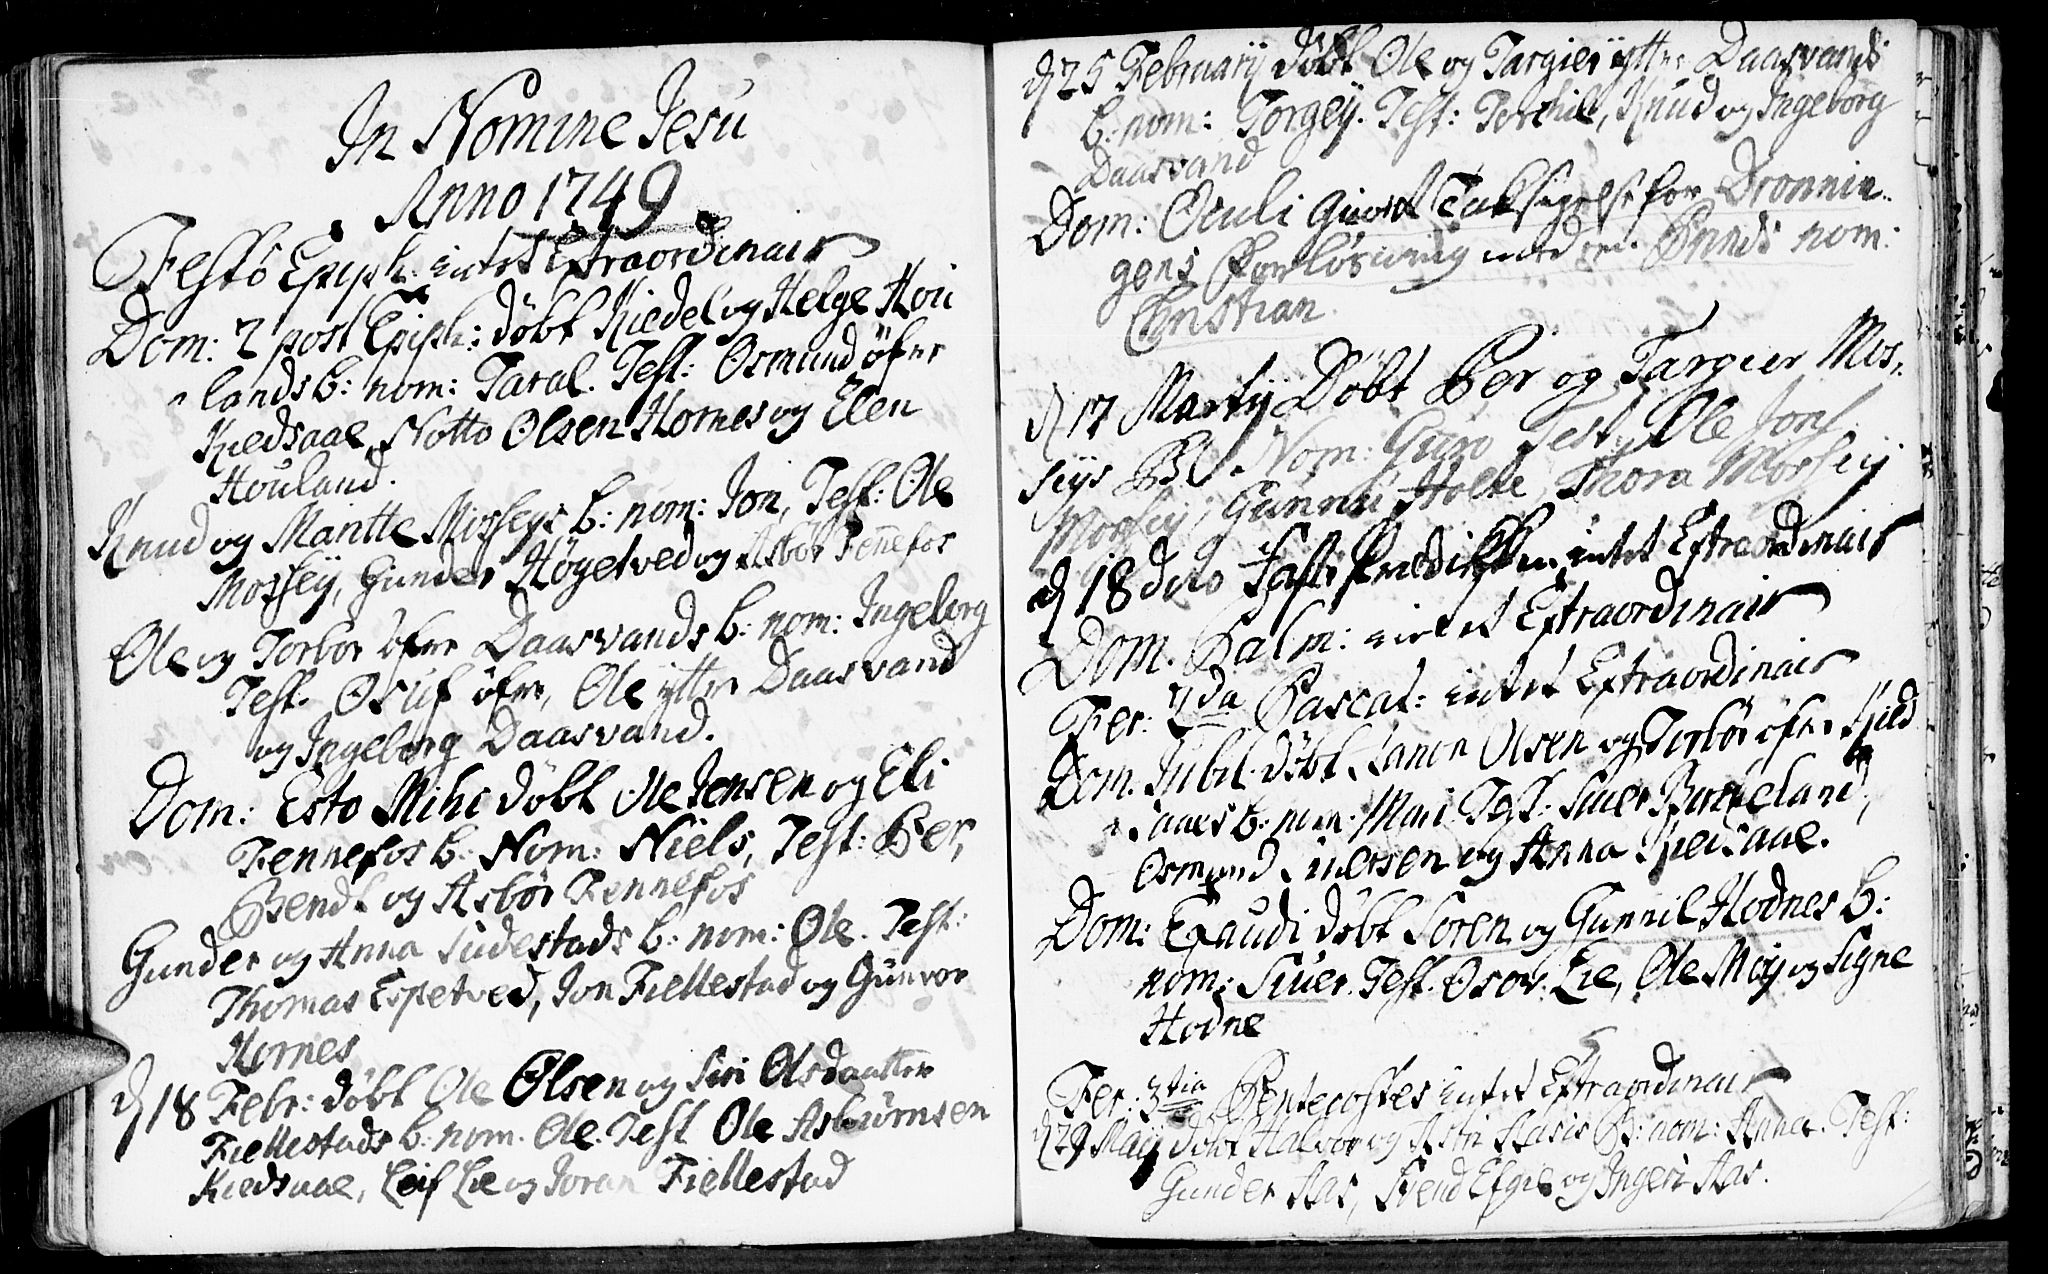 In Nomine Jesu
Anno 1749
Festo Epiph: intet Extraordinair
Dom: 2 post Epiph: døbt Kiedel og Helge Hou
lands b: nom: Taral. Test: Osmund øfre
Kiedsaae, Notto Olsen Hornes og Elen
Houland.
Knud og Mantte Mosseys b: nom: Jon, Test: Ole
Mossey, Gunder Høgetved og Asbør Fennefos
Ole og Torbor øfre Daasvands b: nom: Ingeborg
Test. Osuf øfre, Ole yttre Daasvand
og Ingeborg Daasvand.
Dom: Esto Mihi døbt Ole Jensen og Eli
Fennefos b: Nom: Niels, Test: Per,
Bendt og Asbør Fennefos
Gunder og Anna Sudestads b: nom: Ole. Test:
Thomas Espetved, Jon Fiellestad og Gunvor
Hornes
d 18 Febr: døbt Ole Olsen og Siri Olsdaatter
Fiellestads b: nom. Ole. Test Ole Asbiørnsen
Kiedsaae, Leif Lie og Joran Fiellestad
d 25 February døbt Ole og Targier yttre Daasvands
b: nom: Torgey. Test: Torkil, Knud og Ingeborg
Daasvand
Dom: Oculi giord Taksigelse for Dronnin-
gens Forløsning med en Prinds nom:
Christian.
d 17 Martij Døbt Per og Targier Mos-
seys B Nom: Guro Test, Ole Jons
Mossey, Gunnil Holte, Thora Mossey
d 18 dito Faste Prædikken intet Extraordinair
Dom. Palm: intet Extraordinair
Fer: 2da Pascat: intet Extraordinair
Dom. Jubil. døbt Olsen og Torbør øfre Kied
saaes b: nom: Mari Test: Siuer Birkeland,
Osmund Siuersen og Anna Kiedsaae.
Dom: Exaudi døbt Soren og Gunnil Hodnes b:
nom: Siuer. Test. Osov. Lie, Ole Moy og Signe
Hodne
Fer: 3tia Pentecostes intet Extraordinair
d 29 Maij døbt Halvor og Astri Aasis B: nom: Anna. Test:
Gunder Aas, Svend og Ingeri Aas.